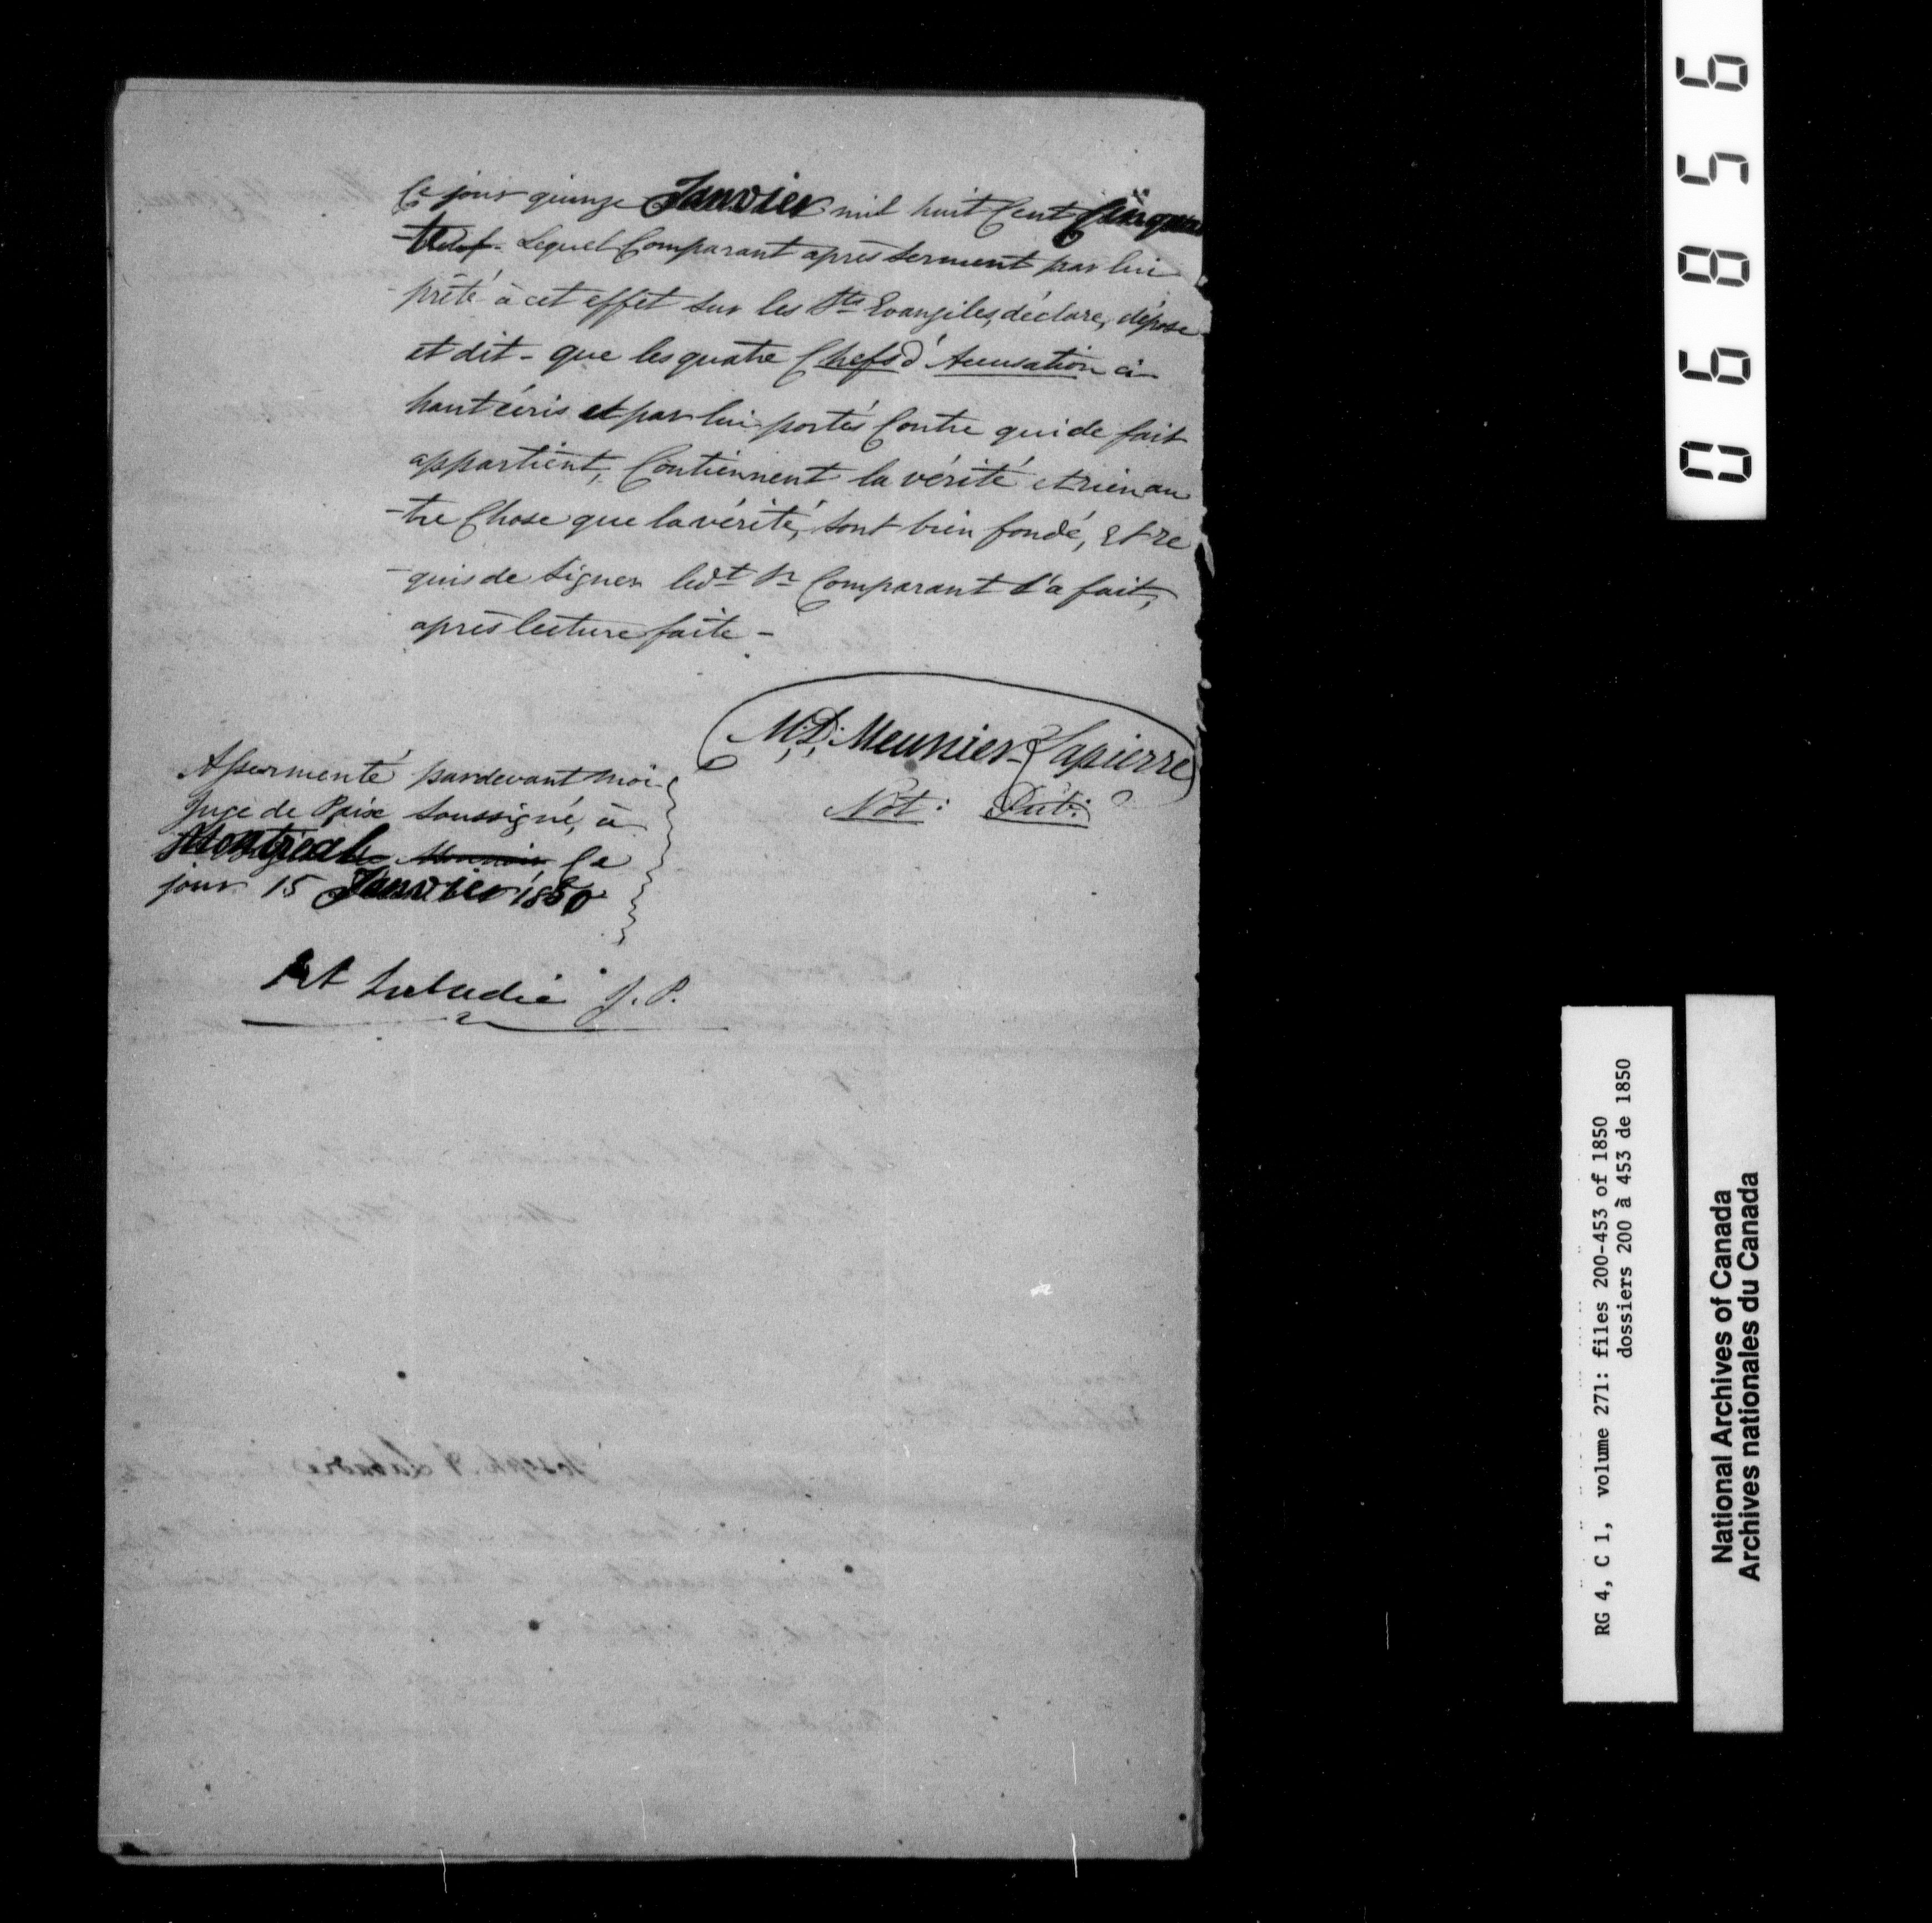 Ce jour quinze Janvier mil huit Cent Cinquan
-te. Lequel Comparant après serment par lui
-prêté à cet effet sur les Sts Evangiles, déclare, dépose
et dit - que les quatre Chefs d'Accusation ci-
haut écris et par lui portés Contre qui de fait
appartient, Contiennent la vérité et rien au
-tre Chose que la vérité, sont bien fondé, Et re
-quis de signer ledt Sr Comparant l'a fait,
après lecture faite -
M. D. Meunier-Lapierre
Not: Pub:
Assermenté pardevant moi
Juge de Paix soussigné, à
Montreal Ce
jour 15 Janvier 1850
Labadie J. P.
Joseph A Labadie
068956
RG 4, C 1, volume 271: files 200-453 of 1850
dossiers 200 à 453 de 1850
National Archives of Canada
Archives nationales du Canada